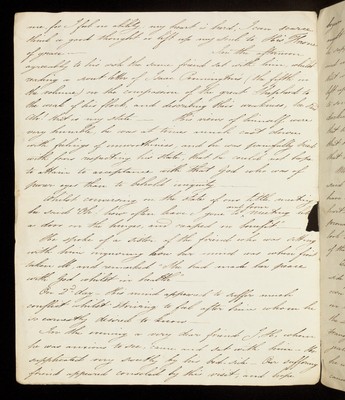 me for I feel in ability my heart is hard, I can scarce
think a good thought or lift up my Soul to thy Throne
of grace —
In the afternoon
agreeably to his wish the same friend sat with him whilst
reading a sweet letter of Isaac Penningtons (the fifth in
the volume) on the compassion of the great Shepherd to
the weak of his flock and describing their weakness, he said
Oh! that is my state — His view of himself were
very humble he was at times much cast down
with feelings of unworthiness, and he was painfully tried
with fears respecting his state, that he could not hope
to attain to acceptance with that God who was of
purer eyes than to behold iniquity —
Whilst conversing on the state of our little meeting
he said "Oh how often have I gone to meeting like
a door on the hinges and reaped no benefit —
He spoke of a sister of the friend who was sitting
with him inquiring how her mind was when first
taken ill and remarked "She had made her peace
with God whilst in health" —
On 3rd day the mind appeared to suffer much
conflict whilst striving to feel after him whom he
so earnestly desired to know —
In the evening a very dear friend J. H. whom
he was anxious to see, came and sat with him, &
supplicated very sweetly by his bed-side. Our suffering
friend appeared consoled by this visit, and hope